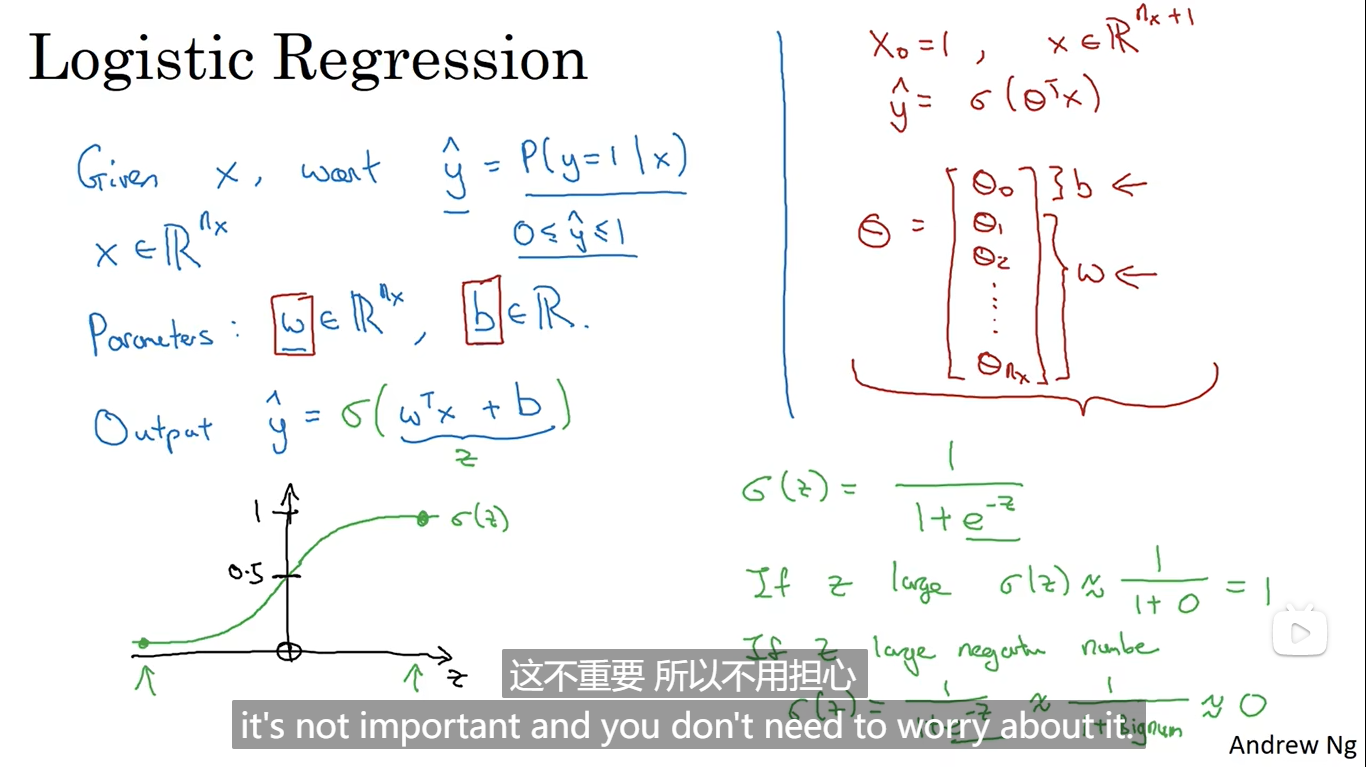 Logistic Regression
Given x, want ŷ = P(y=1|x)
0 ≤ ŷ ≤ 1
x ∈ ℝ^{n_x}
Parameters: w ∈ ℝ^{n_x}, b ∈ ℝ.
Output ŷ = σ(w^T x + b)
z
1
σ(z)
0.5
z
x_0 = 1, x ∈ ℝ^{n_x+1}
ŷ = σ(θ^T x)
θ = [θ_0 θ_1 θ_2 ⋮ θ_{n_x}]
} b ←
} w ←
σ(z) = 1 / (1 + e^{-z})
If z large σ(z) ≈ 1 / (1 + 0) = 1
If z large negative number
σ(z) = 1 / (1 + e^{-z}) ≈ 1 / (1 + Bignum) ≈ 0
这不重要 所以不用担心
it's not important and you don't need to worry about it.
Andrew Ng